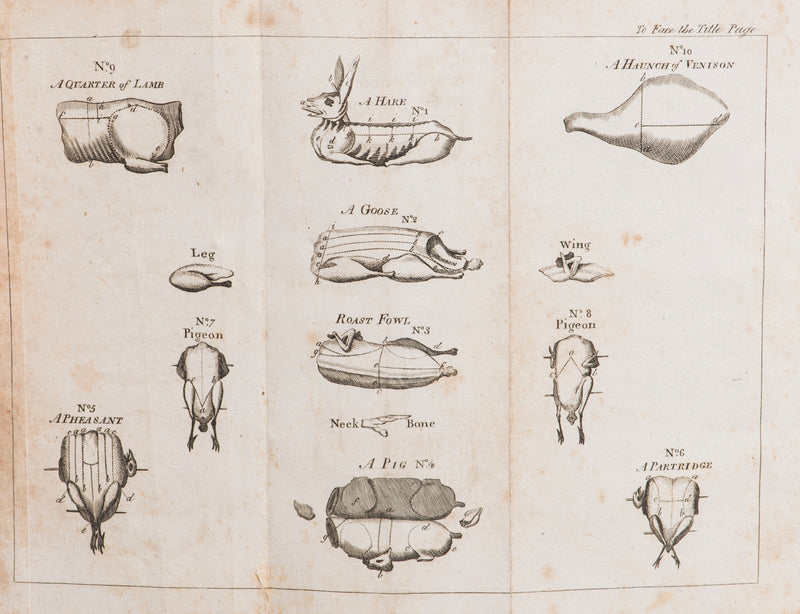 To Face the Title Page
Nº9
A QUARTER of LAMB
A HARE
Nº1
Nº10
A HAUNCH of VENISON
A GOOSE
Nº2
Leg
Wing
Nº7
Pigeon
ROAST FOWL
Nº3
Nº 8
Pigeon
Nº5
A PHEASANT
Neck Bone
A PIG Nº4
Nº6
A PARTRIDGE